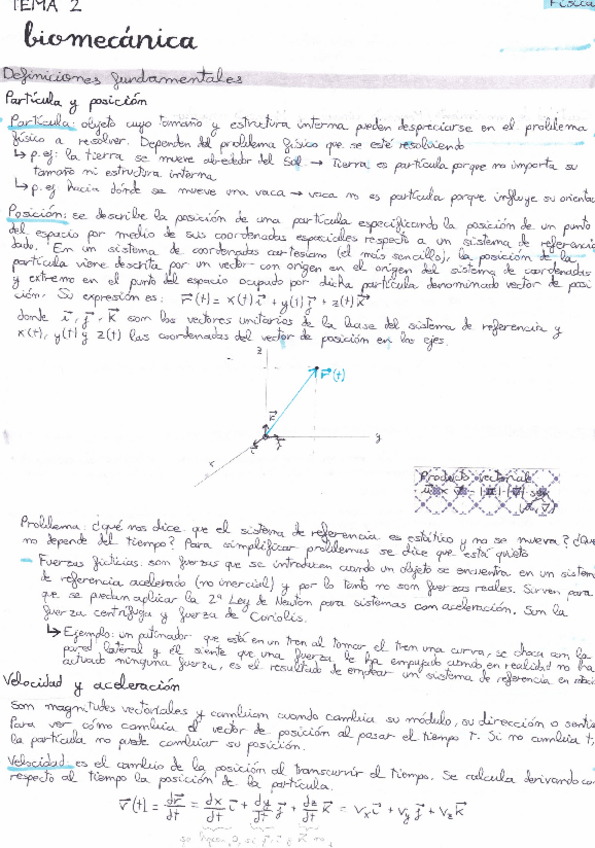 TEMA 2
Física
biomecánica
Definiciones fundamentales
Partícula y posición
Partícula: objeto cuyo tamaño y estructura interna pueden despreciarse en el problema
físico a resolver. Dependen del problema físico que se esté resolviendo
↳ p.ej: la tierra se mueve alrededor del Sol → Tierra es partícula porque no importa su
tamaño ni estructura interna.
↳ p.ej. hacia dónde se mueve una vaca → vaca no es partícula porque influye su orienta
Posición: se describe la posición de una partícula especificando la posición de un punto
del espacio por medio de sus coordenadas espaciales respecto a un sistema de referencia
dado. En un sistema de coordenadas cartesiano (el más sencillo), la posición de la
partícula viene descrita por un vector con origen en el origen del sistema de coordenadas
y extremo en el punto del espacio ocupado por dicha partícula denominado vector de posi
ción. Su expresión es: r⃗(t) = x(t) i⃗ + y(t) j⃗ + z(t) k⃗
donde i⃗, j⃗, k⃗ son los vectores unitarios de la base del sistema de referencia y
x(t), y(t) y z(t) las coordenadas del vector de posición en los ejes.
z
r⃗(t)
k⃗
y
Producto vectorial
Problema: ¿qué nos dice que el sistema de referencia es estático y no se mueva? ¿Que
no depende del tiempo? Para simplificar problemas se dice que está quieto
– Fuerzas ficticias: son fuerzas que se introducen cuando un objeto se encuentra en un sistem
de referencia acelerado (no inercial) y por lo tanto no son fuerzas reales. Sirven para
que se puedan aplicar la 2ª Ley de Newton para sistemas con aceleración. Son la
fuerza centrífuga y fuerza de Coriolis.
↳ Ejemplo: un patinador que está en un tren al tomar el tren una curva, se choca con la
pared lateral y él siente que una fuerza le ha empujado cuando en realidad no ha
actuado ninguna fuerza, es el resultado de emplear un sistema de referencia en
Velocidad y aceleración
Son magnitudes vectoriales y cambian cuando cambia su módulo, su dirección o senti
Para ver cómo cambia el vector de posición al pasar el tiempo t. Si no cambia t,
la partícula no puede cambiar su posición.
Velocidad: es el cambio de la posición al transcurrir el tiempo. Se calcula derivando con
respecto al tiempo la posición de la partícula.
v⃗(t) = dr⃗/dt = dx/dt i⃗ + dy/dt j⃗ + dz/dt k⃗ = vx i⃗ + vy j⃗ + vz k⃗